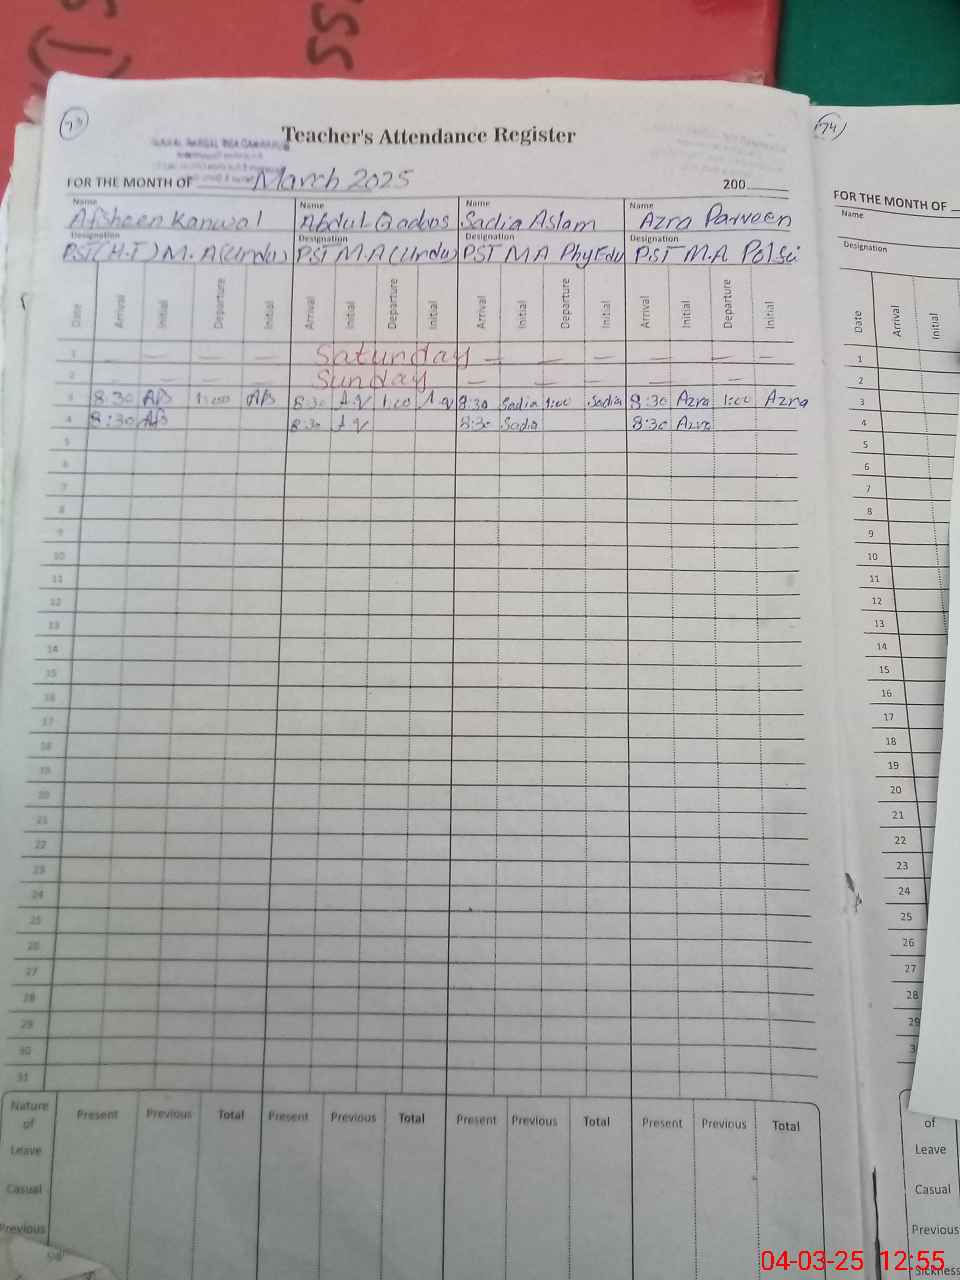 SS
73
Teacher's Attendance Register
FOR THE MONTH OF March 2025 200
Name Name Name Name
Afsheen Kanwal Abdul Qadoos Sadia Aslam Azra Parveen
Designation Designation Designation Designation
PST(H.T) M.A(Urdu) PST M.A(Urdu) PST MA PhyEdu PST M.A Pol Sci
Date Arrival Initial Departure Initial Arrival Initial Departure Initial Arrival Initial Departure Initial Arrival Initial Departure Initial
1 — — — Saturday — — — — — —
2 — — — Sunday — — — — — —
3 8:30 1:00 8:30 A.Q 1:00 A.Q 8:30 Sadia 1:00 Sadia 8:30 Azra 1:00 Azra
4 8:30 8:30 A.Q 8:30 Sadia 8:30 Azra
5
6
7
8
9
10
11
12
13
14
15
16
17
18
19
20
21
22
23
24
25
26
27
28
29
30
31
Nature of Leave Present Previous Total Present Previous Total Present Previous Total Present Previous Total
Casual
Previous
74
FOR THE MONTH OF
Name
Designation
Date Arrival Initial
1
2
3
4
5
6
7
8
9
10
11
12
13
14
15
16
17
18
19
20
21
22
23
24
25
26
27
28
29
of
Leave
Casual
Previous
Sickness
04-03-25 12:55